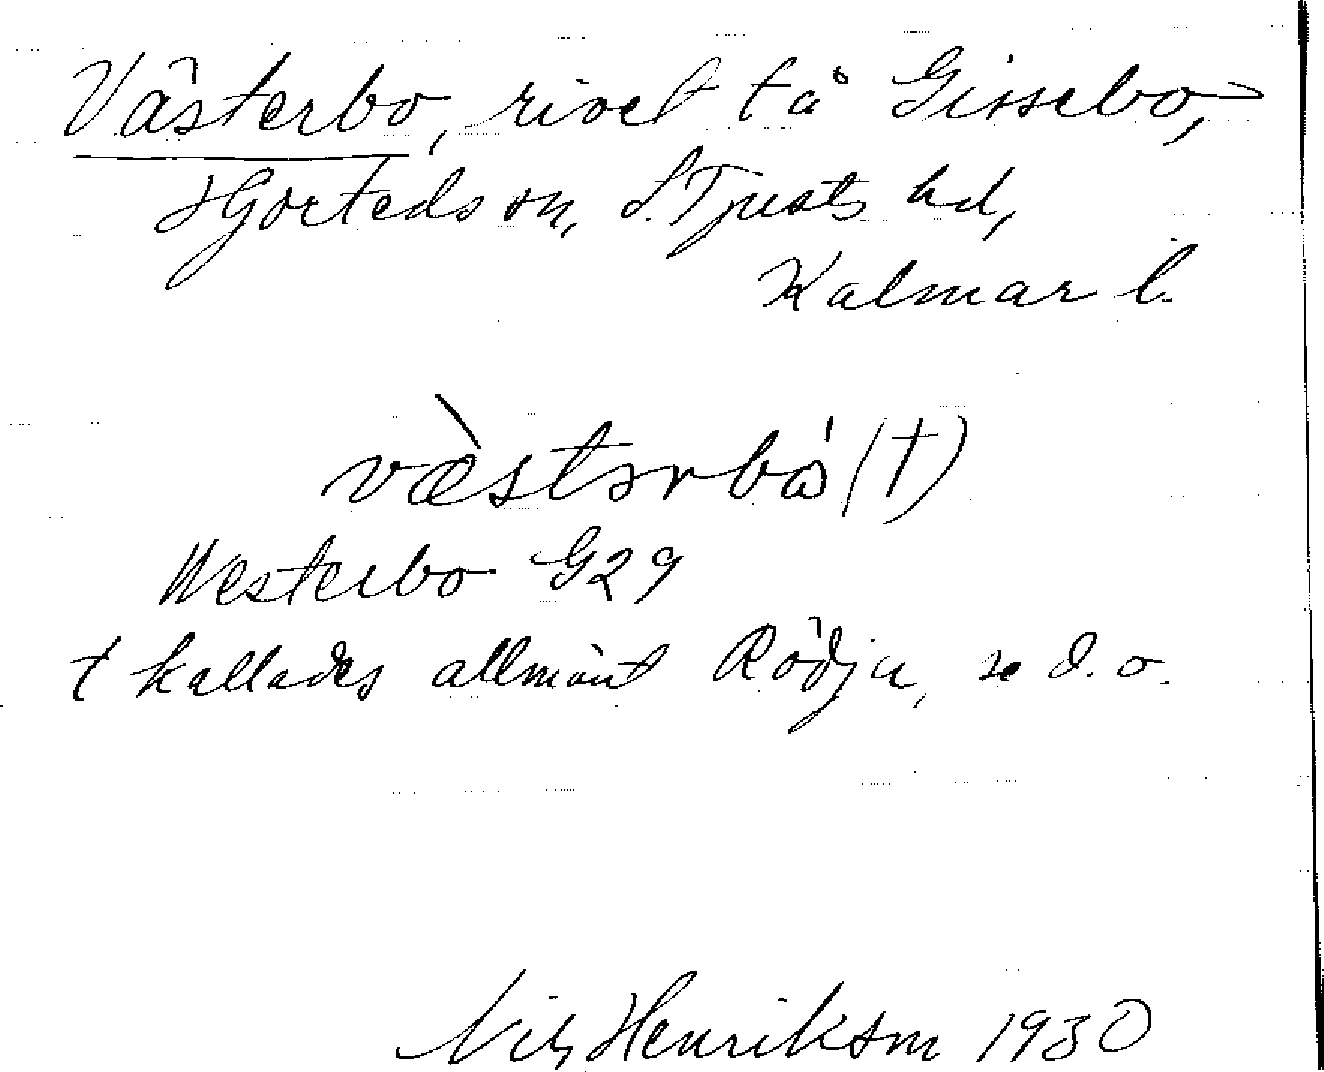 Västerbo, rivet tå Gissebo,
Hjorteds sn, S. Tjusts hd,
Kalmar l.
væ̀stərbó (†)
Westerbo G29
† kallades allmänt Rödja, se d. o.
Nils Henriksson 1930